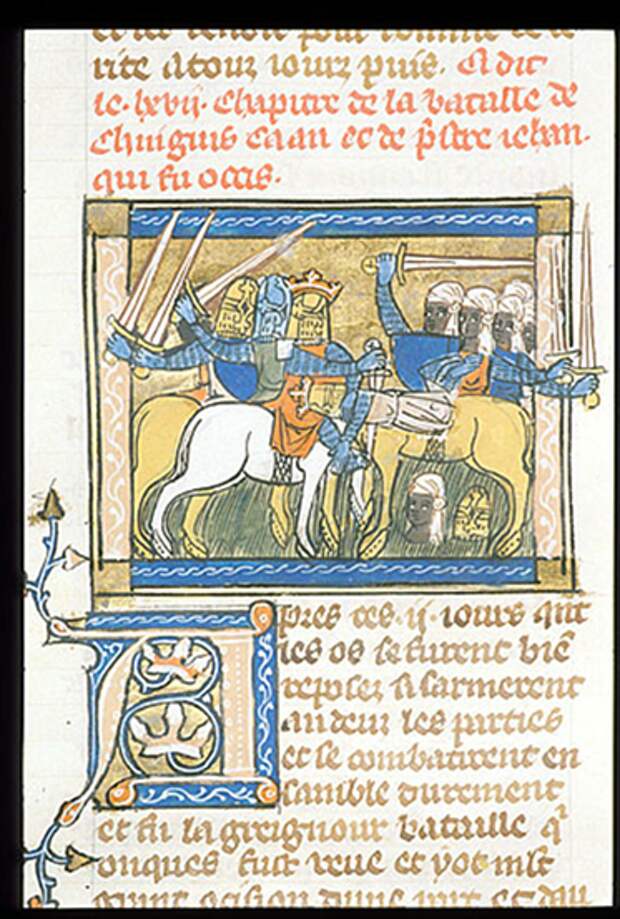 rite a touz iours puis. Ci dit
le .lxvij. Chapitre de la bataille de
Chinguis Caan et de prestre iehan.
qui fu occis.
Apres ces .ij. iours ont
les os se furent bien
reposez si sarmerent
andeux les parties
et se combatirent en
samble durement
et fu la greignour bataille q
onques fust veue et y ot mlt